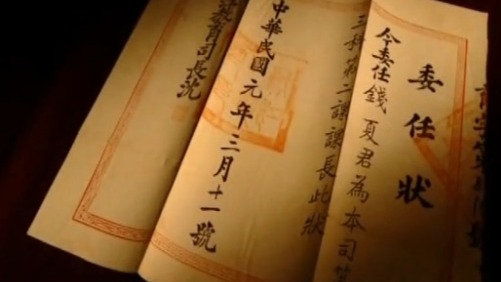 委任狀
今委任錢夏君為本司第
三科第二課課長此狀
中華民國元年三月十一號
教育司長沈